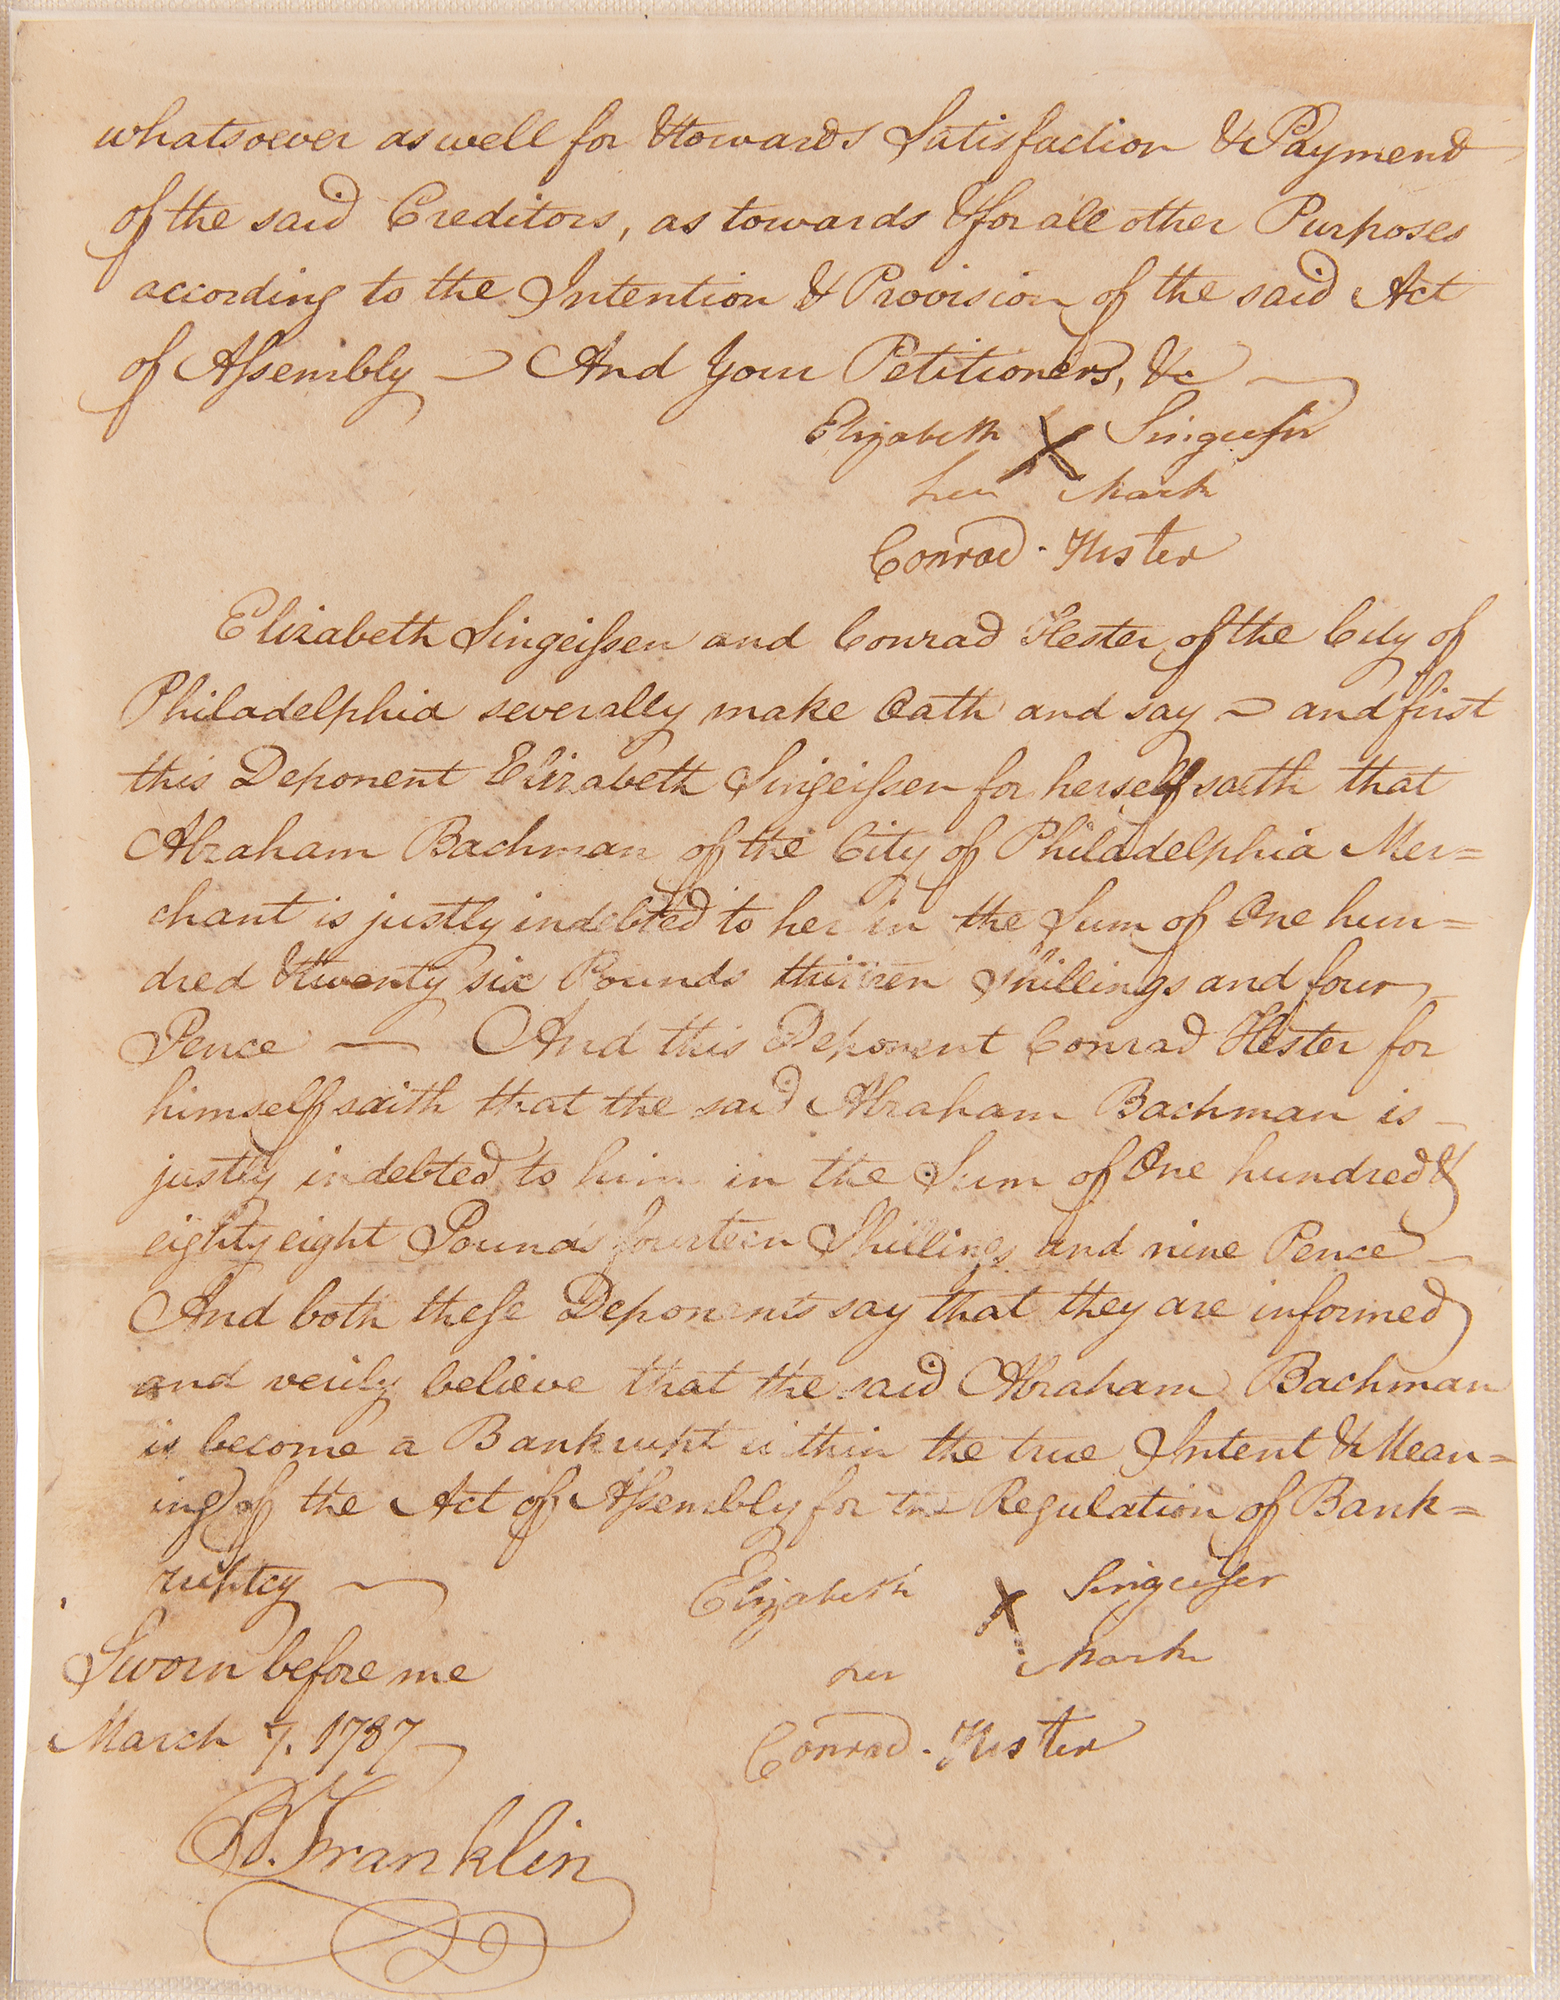 whatsoever as well for & towards Satisfaction & Payment
of the said Creditors, as towards & for all other Purposes
according to the Intention & Provision of the said Act
of Assembly — And Your Petitioners, &c —
Elizabeth X Singeisen
her Mark
Conrad Hester
Elizabeth Singeissen and Conrad Hester of the City of
Philadelphia severally make Oath and say — and first
this Deponent Elizabeth Singeissen for herself saith that
Abraham Bachman of the City of Philadelphia Mer=
chant is justly indebted to her in the Sum of One hun=
dred & twenty six Pounds thirteen Shillings and four
Pence — And this Deponent Conrad Hester for
himself saith that the said Abraham Bachman is
justly indebted to him in the Sum of One hundred &
eighty eight Pounds fourteen Shillings and nine Pence
And both these Deponents say that they are informed
and verily believe that the said Abraham Bachman
is become a Bankrupt within the true Intent & Mean=
ing of the Act of Assembly for the Regulation of Bank=
ruptcy —
Elizabeth X Singeisser
her Mark
Conrad Hester
Sworn before me
March 7. 1787
B. Franklin